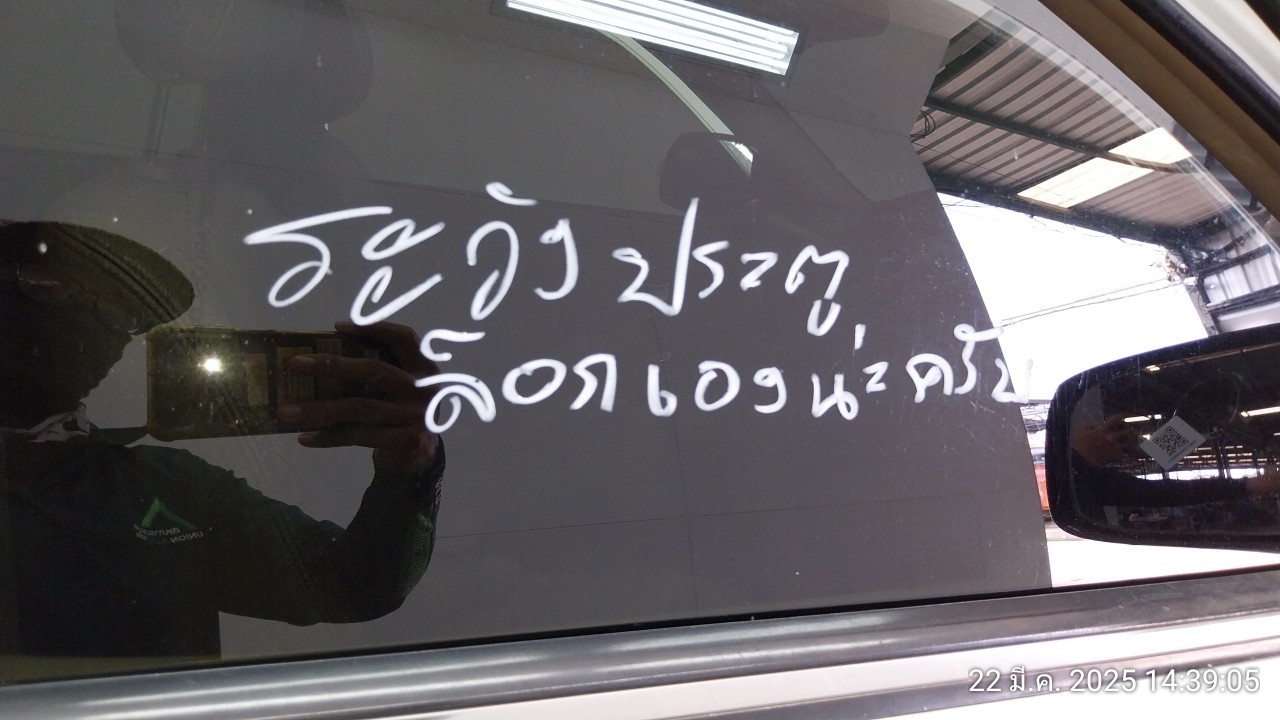 ระวังประตู
ล็อกเองน่ะครับ
22 มี.ค. 2025 14:39:05